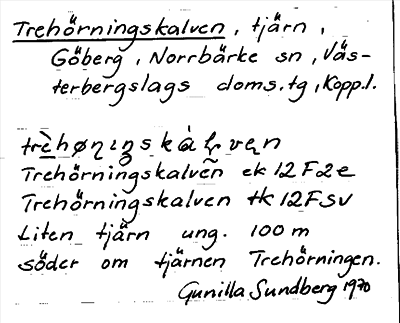 Trehörningskalven, tjärn,
Göberg, Norrbärke sn, Väs-
terbergslags doms.tg, Kopp.l.
Trehörningskalven ek 12F2e
Trehörningskalven tk 12FSV
Liten tjärn ung. 100 m
söder om tjärnen Trehörningen.
Gunilla Sundberg 1970